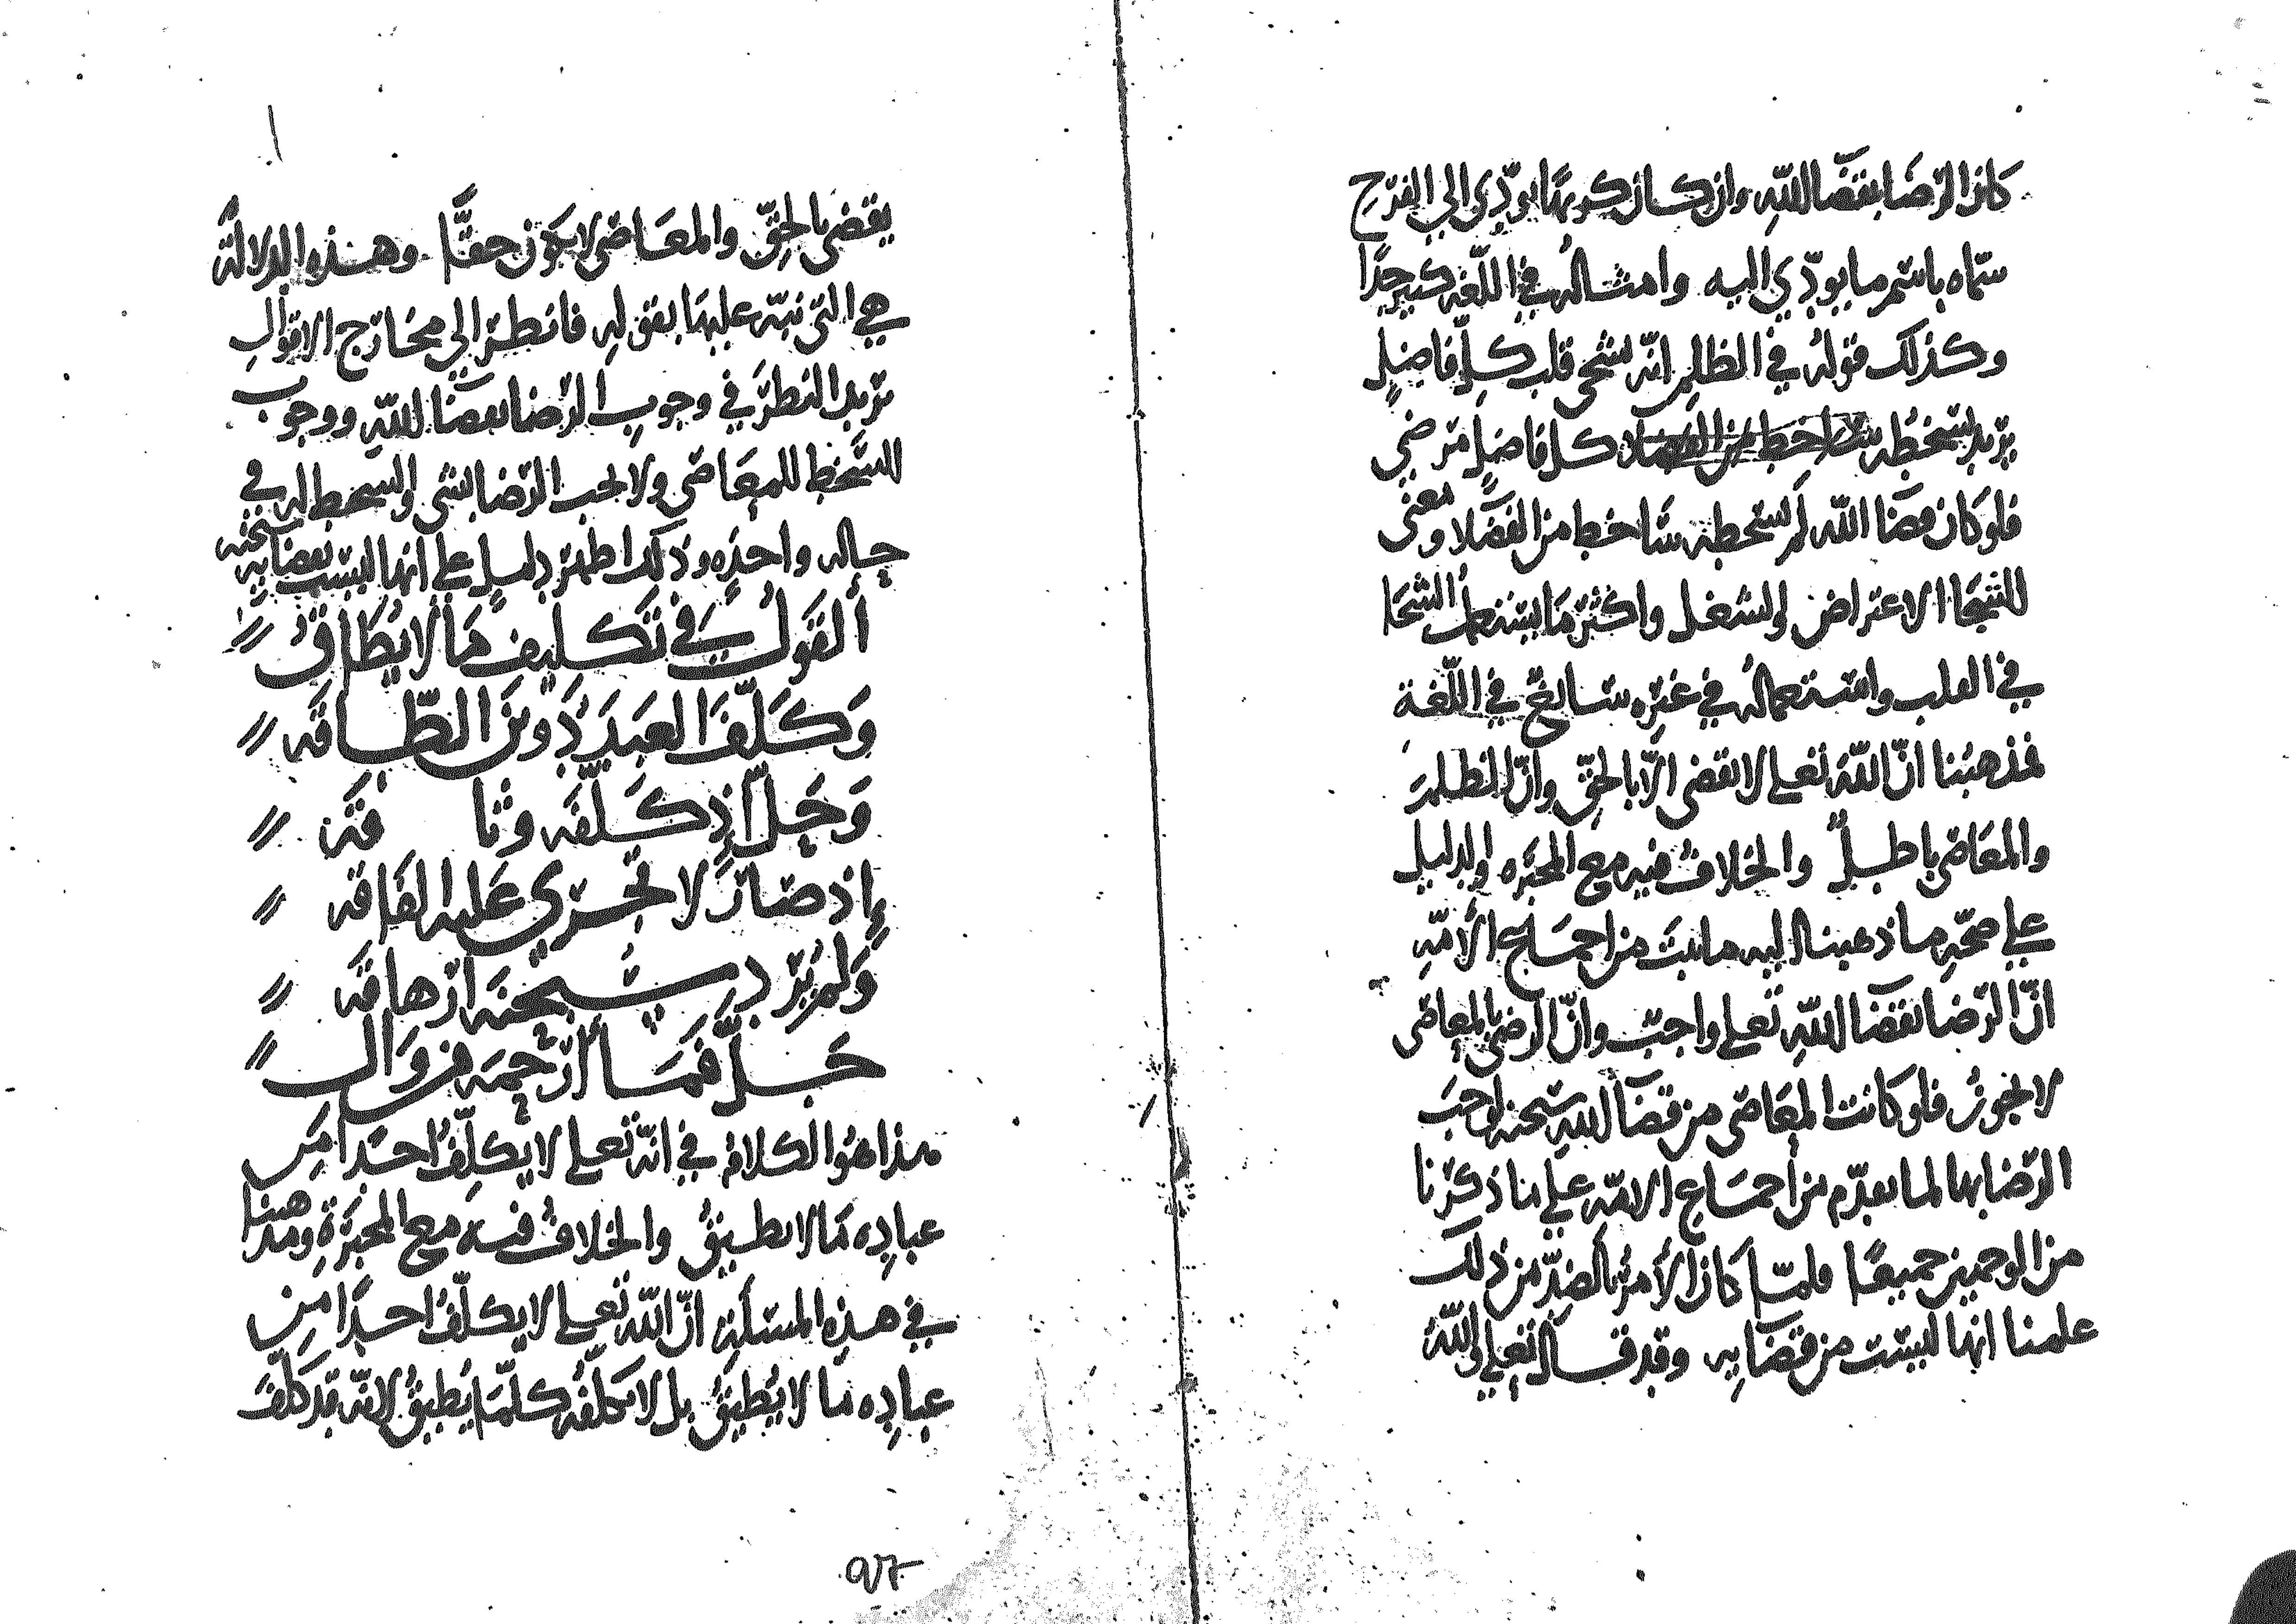 كان الرضا بقضا الله وان كان كريها يودي الي الفرح
سماه باسم ما يودي اليه وامثاله في اللغه كثير جدا
وكذلك قوله في الظلم انه شجى قلب كل فاضل
يريد يسخطه كل فاضل مرضي
فلو كان قضا الله لم يسخطه ساخط من الفضلا ومعنى
الشجا الاعتراض والشغل واكثر ما يستعمل الشجا
في القلب واستعماله في غيره سائغ في اللغة
فمذهبنا ان الله تعلى لا يقضي الا بالحق وان الظلم
والمعاصي باطل والخلاف فيه مع المجبره والدليل
على صحة ما ذهبنا اليه ما ثبت من اجماع الأمه
ان الرضا بقضا الله تعلى واجب وان الرضى بالمعاصي
لا يجوز فلو كانت المعاصي من قضا الله سبحنه لوجب
الرضا بها لما تقدم من اجماع الامه على ما ذكرنا
من الوجهين جميعا فلما كان الأمر بالضد من ذلك
علمنا انها ليست من قضايه وقد قال تعلى والله
يقضي بالحق والمعاصي لا تكون حقا وهذه الدلالة
هي التي نبه عليها بقوله فانظر الي مخارج الاقوال
يريد النظر في وجوب الرضا بقضا الله ووجوب
السخط للمعاصي ولا يجب الرضا بشى والسخط له في
حاله واحده وذلك اظهر دليل على انها ليست بقضايه سبحنه
ألقول في تكليف ما لا يطاق
وكلف العبد دون الطاقه
وحل اذ كلفه وثاقه
إذ صار لا تجري عليه الفاقه
ولم يرد سبحنه ازهاقه
جل فما أرحمه من وال
هذا هو الكلام في انه تعلى لا يكلف احدا من
عباده ما لا يطيق والخلاف فيه مع المجبرة ومذهبنا
في هذه المسألة ان الله تعلى لا يكلف احدا من
عباده ما لا يطيق بل لا يكلفه كلما يطيق لانه قد كلف